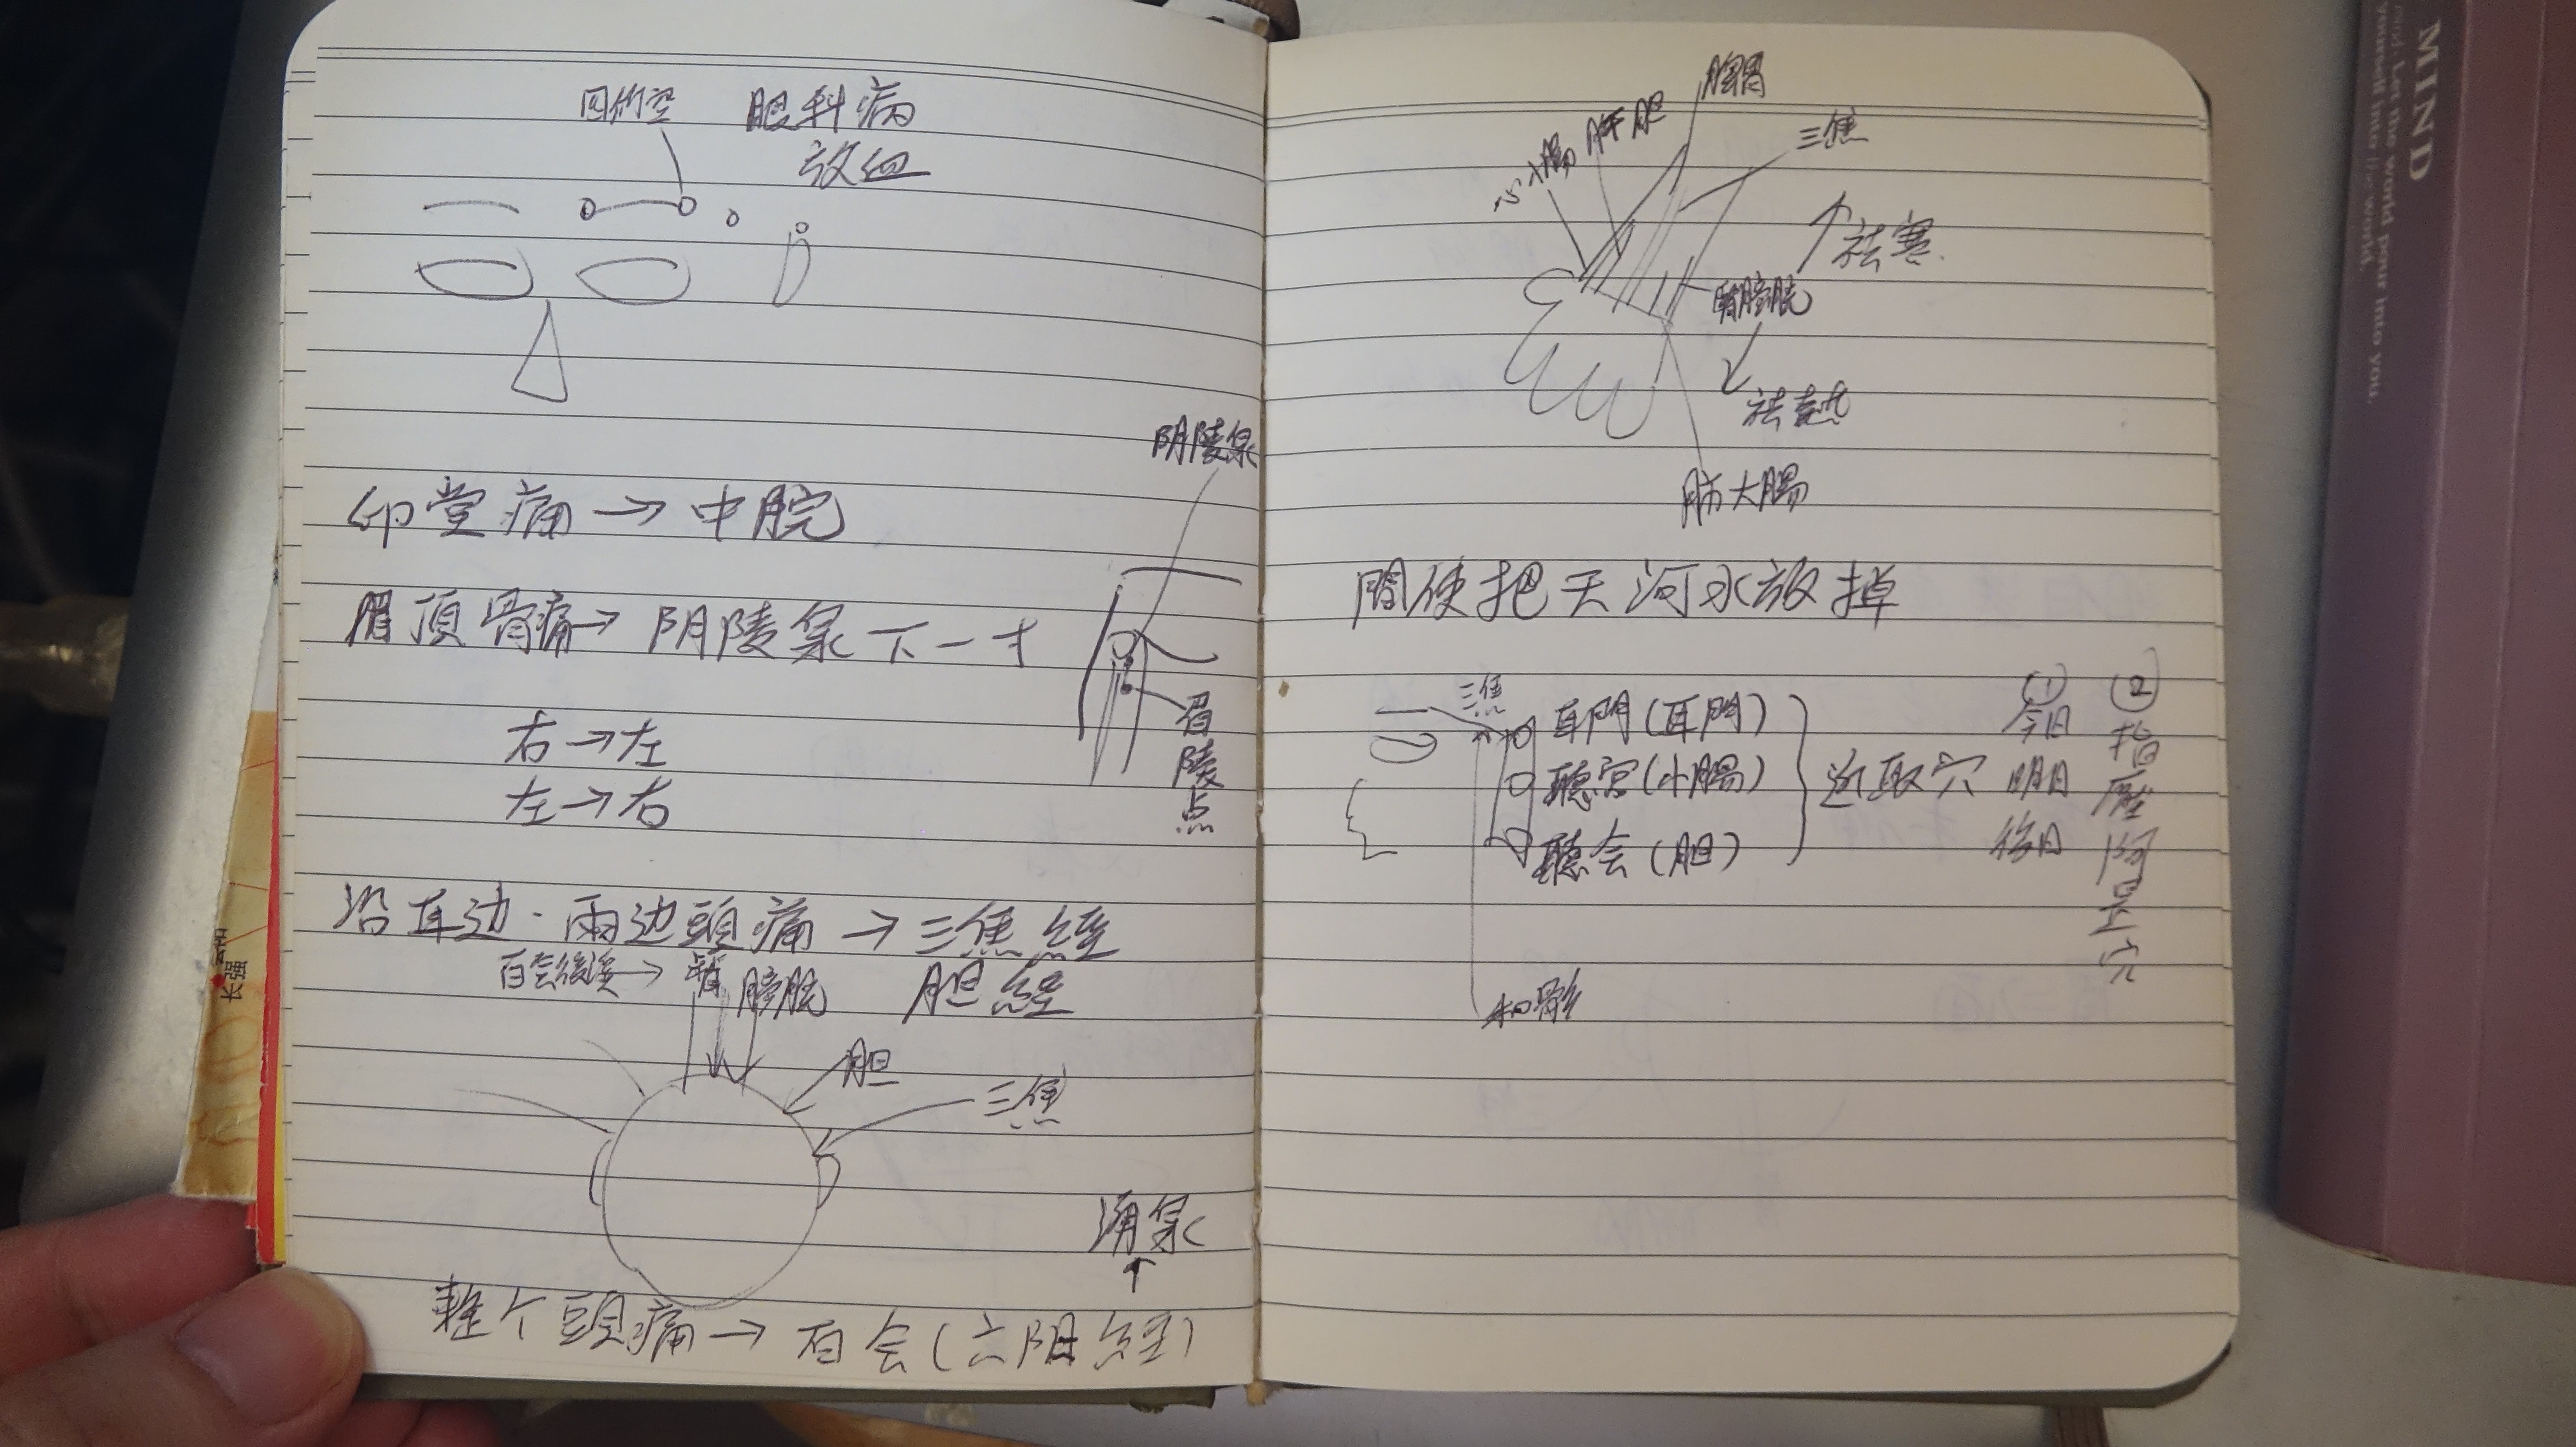 眼科病
放血
阴陵泉
印堂痛→中脘
眉頂骨痛→阴陵泉下一寸
右→左
左→右
眉陵点
沿耳边·兩边頭痛→三焦經
百会後溪→腎膀胱 胆經
胆
三焦
涌泉
↑
整个頭痛→百会(六阳經)
三焦
心小腸
肝胆
祛寒
腎膀胱
祛熱
肺大腸
間使把天河水放掉
三焦
耳門(耳門)
聽宮(小腸)
聽会(胆)
近取穴
①今日
明日
後日
②指壓阿是穴
和髎
MIND
长强